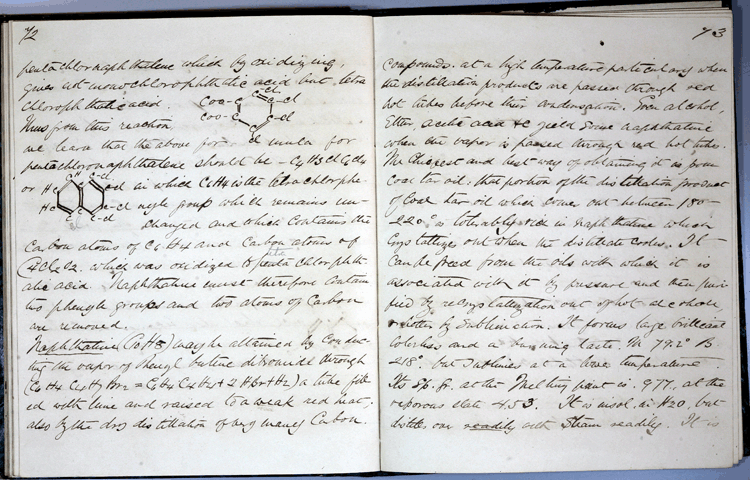 72
pentachlornaphthalene which by oxidizing,
gives not monochlorophthalic acid but tetra
chlorophthalic acid.
Coo-C C-Cl C-Cl
Thus from this reaction coo-C C-Cl
we learn that the above for- Cl mula for
pentachloronaphthalene should be - C6H3Cl C4Cl4
or HC C-Cl in which C6H4 is the tetrachlorphe-
HC C-Cl nyle group which remains un-
C-Cl changed and which contains the
Carbon atoms of C6H4 and Carbon atoms of
which was oxidized to tetra chlorphth-
alic acid. Naphthaline must therefore contain
two phenyle groups and two atoms of Carbon
are removed.
Naphthaline (C10H8) may be attained by conduc-
ting the vapor of phenyl butine dibromide through
(C6H4 C4H7 Br2 = C6H4C4H4 + 2HBr + H2) a tube fill-
ed with lime and raised to a weak red heat.
also by the dry distillation of very many Carbon.
73
compounds. at a high temperature particularly when
the distillation products are passed through red
hot tubes before their condensation. Even alcohol,
Ether, acetic acid &c yield some naphthaline
when the vapor is passed through red hot tubes.
The Cheapest and best way of obtaining it is from
coal tar oil: that portion of the distillation product
of Coal tar oil which comes out between 180-
220° is tolerably rich in Naphthaline which
Crystallizes out when the distillate cooles. It
Can be freed from the oils with which it is
associated with it by pressure and then puri-
fied by recrystallization out of hot alcohole
or better by Sublimation. It forms large brilliant
colorless and a burning taste. M 79.2° B.
218°. but Sublimes at a lower temperature.
Its Sp. Gr. at the Melting point is .977, at the
vaporous state 4.53. It is insol. in H2O, but
distils over readily with Steam readily. It is